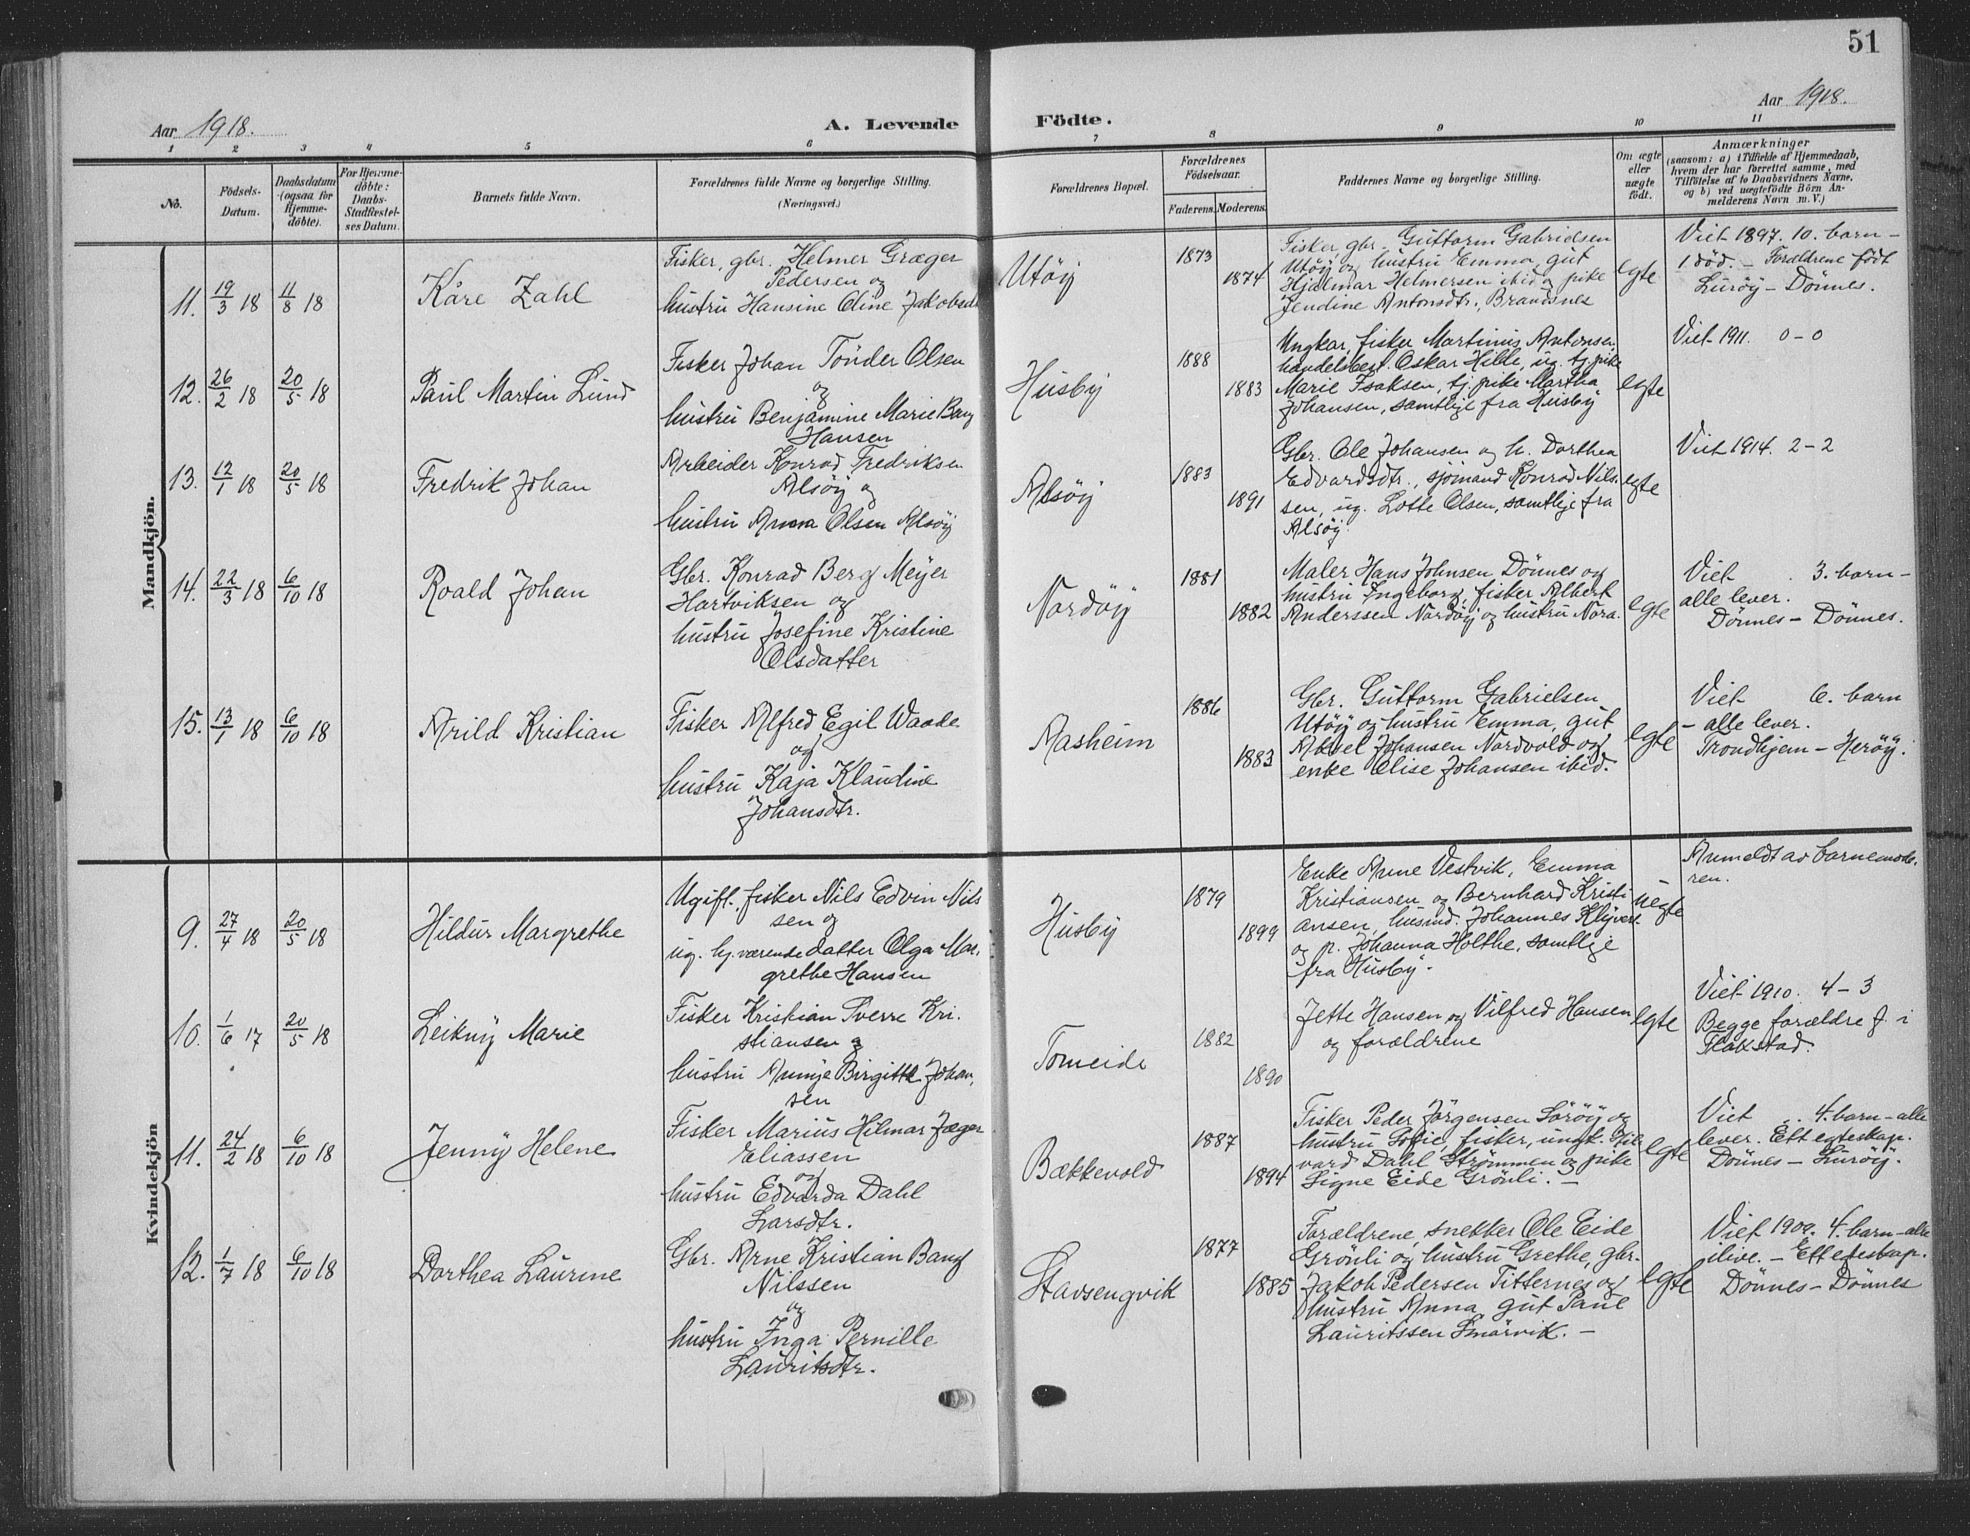 51
Aar 1918.
A. Levende Födte.
Aar 1918.
1 2 3 4 5 6 7 8 9 10 11
No.
Födsels-
Datum.
Daabsdatum
(ogsaa for
Hjemme-
döbte).
For Hjemme-
döbte:
Daabs-
Stadfæstel-
ses Datum.
Barnets fulde Navn.
Forældrenes fulde Navne og borgerlige Stilling.
(Næringsvei.)
Forældrenes Bopæl.
Forældrenes
Födselsaar.
Faderens. Moderens.
Faddernes Navne og borgerlige Stilling.
Om ægte
eller
uægte
födt.
Anmærkninger
(saasom: a) i Tilfælde af Hjemmedaab,
hvem der har forrettet samme, med
Tilföielse af to Daabsvidners Navne,
og b) ved uægtefödte Börn An-
melderens Navn m. V.)
Mandkjön.
11. 19/3 18 11/8 18
Kåre Zahl
Fisker, gbr. Helmer Græger
Pedersen og
hustru Hansine Oline Jakobsdt
Utöy
1873
1874
Fisker, gbr. Guttorm Gabrielsen
Utöy og hustru Emma, gut
Hjalmar Helmersen ibid og pike
Jendine Antonsdtr., Brandsnes
egte
Viet 1897. 10. barn –
1 död. – Forældrene födt
Luröy – Dönnes.
12. 26/2 18 20/5 18
Paul Martin Lund
Fisker Johan Tönder Olsen
og
hustru Benjamine Marie Bang
Hansen
Husby
1888
1883
Ungkar, fisker Martinus Antonsen,
handelsbest. Oskar Hilde, ug. tj. pike
Marie Isaksen, tj. pike Martha
Johansen, samtlige fra Husby
egte
Viet 1911. 0–0
13. 12/1 18 20/5 18
Fredrik Johan
Arbeider Konrad Fredriksen
Alsöy og
hustru Anna Olsen Alsöy
Alsöy
1883
1891
Gbr. Ole Johansen og h. Dorthea
Edvardsdtr., sjömand Konrad Nils-
sen, ug. Lotte Olsen, samtlige fra
Alsöy.
egte
Viet 1914. 2–2
14. 22/3 18 6/10 18
Roald Johan
Gbr. Konrad Berg Meyer
Hartviksen og
hustru Josefine Kristine
Olsdatter
Nordöy
1881
1882
Maler Hans Johnsen Dönnes og
hustru Ingeborg, fisker Albert
Anderssen Nordöy og hustru Nora.
egte
Viet . 3. barn –
alle lever.
Dönnes – Dönnes.
15. 13/1 18 6/10 18
Arild Kristian
Fisker Alfred Egil Waade
og
hustru Kaja Klaudine
Johansdtr.
Aasheim
1886
1883
Gbr. Guttorm Gabrielsen
Utöy og hustru Emma, gut
Aksel Johansen Nordvold og
enke Elise Johansen ibid.
egte
Viet 6. barn
– alle lever.
Trondhjem – Heröy.
Kvindekjön
9. 27/4 18 20/5 18
Hildur Margrethe
Ugift, fisker Nils Edvin Nils
sen og
ug. hj. værende datter Olga Mar-
grethe Hansen
Husby
1879
1899
Enke Anne Vestvik, Emma
Kristiansen og Bernhard Kristi
ansen, husmd. Johannes Klyvert.
og p. Johanna Holthe, samtlige
fra Husby.
uegte
Anmeldt av barnemode-
ren.
10. 1/6 17 20/5 18
Leikny Marie
Fisker Kristian Sverre Kri-
stiansen og
hustru Annye Birgitte Johan-
sen
Tomeide
1882
1890
Jette Hansen og Vilfred Hansen
og forældrene
egte
Viet 1910. 4–3
Begge forældre f. i
Flakstad.
11. 24/2 18 6/10 18
Jenny Helene
Fisker Marius Hilmar Jæger
Eliassen
og
hustru Edvarda Dahl
Larsdtr.
Bækkevold
1887
1894
Fisker Peder Jörgensen Söröy og
hustru Sofie, fisker, ungk.
vard Dahl Strömmen og pike
Signe Eide Grönli. –
egte
Viet . 4. barn – alle
lever. Ett egteskap.
Dönnes – Luröy.
12. 1/7 18 6/10 18
Dorthea Laurine
Gbr. Arne Kristian Bang
Nilssen
og
hustru Inga Pernille
Lauritsdtr.
Stavsengvik
1877
1885
Forældrene, snekker Ole Eide
Grönli og hustru Grethe, gbr.
Jakob Pedersen Titternes og
hustru Anna, gut Paul
Lauritssen Smörvik. –
egte
Viet 1909. 4. barn – alle
ilive. – Ett egteskap.
Dönnes – Dönnes